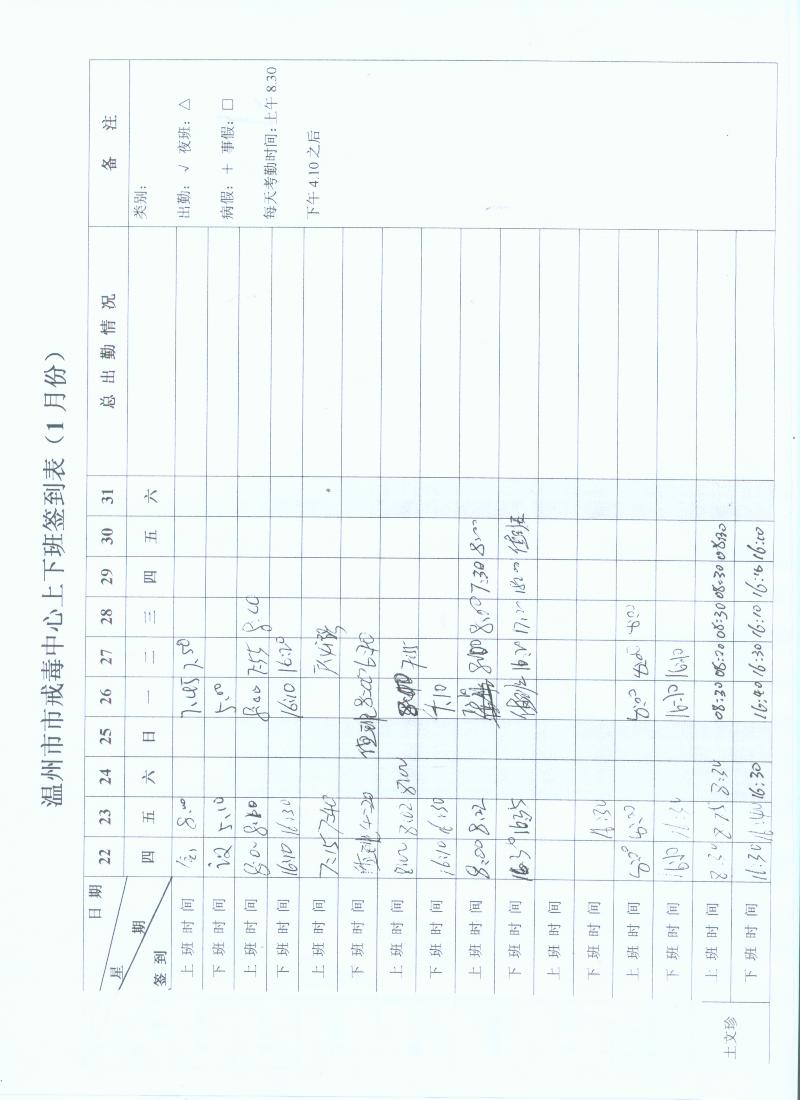 温州市市戒毒中心上下班签到表（1月份）
日期 22 23 24 25 26 27 28 29 30 31 总出勤情况 备注
星期 四 五 六 日 一 二 三 四 五 六
签到
类别：
出勤：√ 夜班：△
病假：＋ 事假：□
每天考勤时间：上午 8.30
下午 4.10 之后
上班时间 8:00 7:45 7.50
下班时间 5.10 5.00
上班时间 8:00 8:00 8:00 7:55 8:00
下班时间 16:10 16:30 16:10 16:20
上班时间 7:15 7:40
下班时间 4-20 值班 8:00
上班时间 8:00 8:02 8:00 7:15
下班时间 16:10 16:30 4.10
上班时间 8:00 8:02 8:00 8:00 7:30 8:00
下班时间 16:35 值班 16:20 17:00 18:00 值班
上班时间
下班时间 16:30
上班时间 8:00 8:00 8:00 8:00
下班时间 16:30 16:30 16:30 16:10
王文珍
上班时间 8:30 8:25 8:30 08:30 08:20 08:30 08:30 08:30
下班时间 16:30 16:40 16:30 16:40 16:30 16:10 16:10 16:00